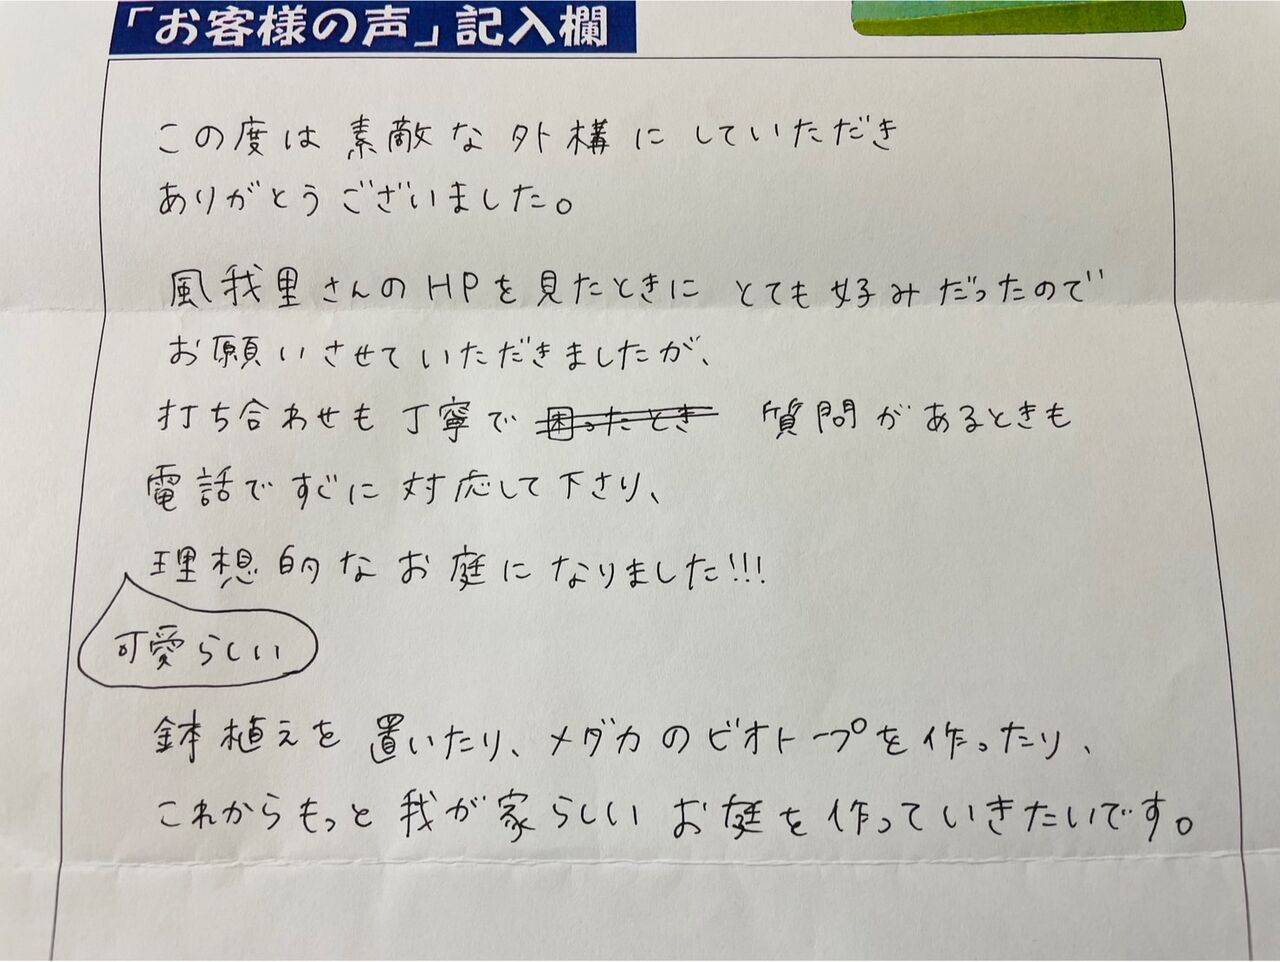 「お客様の声」記入欄
この度は素敵な外構にしていただき
ありがとうございました。
風我里さんのHPを見たときにとても好みだったので
お願いさせていただきましたが、
打ち合わせも丁寧で 困ったとき 質問があるときも
電話ですぐに対応して下さり、
理想的なお庭になりました!!!
可愛らしい
鉢植えを置いたり、メダカのビオトープを作ったり、
これからもっと我が家らしいお庭を作っていきたいです。